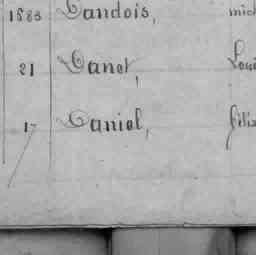 1883 Dandois, mich
21 Danet, Loui
17 Daniel, félix